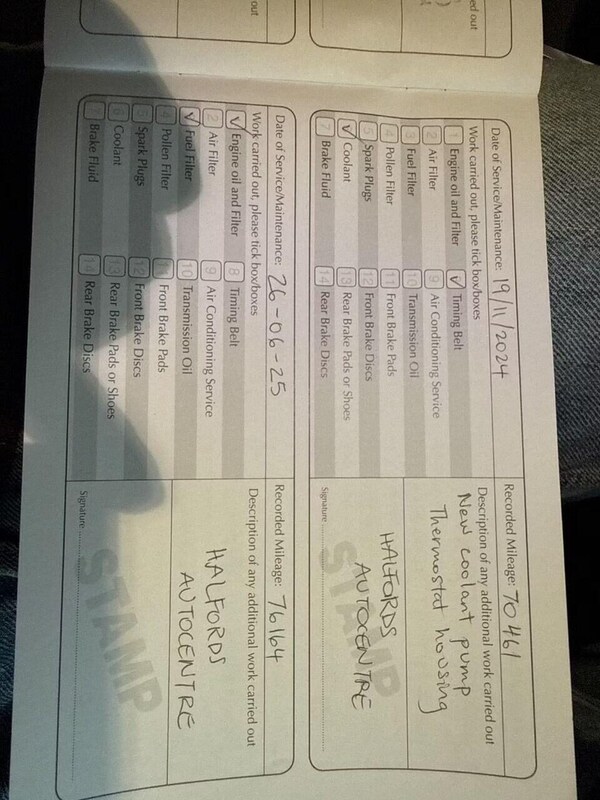 ed out
out
Date of Service/Maintenance: 19/11/2024
Recorded Mileage: 70461
Work carried out, please tick box/boxes
Description of any additional work carried out
1 Engine oil and Filter
8 Timing Belt
2 Air Filter
9 Air Conditioning Service
3 Fuel Filter
10 Transmission Oil
4 Pollen Filter
11 Front Brake Pads
5 Spark Plugs
12 Front Brake Discs
6 Coolant
13 Rear Brake Pads or Shoes
7 Brake Fluid
14 Rear Brake Discs
New coolant pump
Thermostat housing
HALFORDS
AUTOCENTRE
STAMP
Signature
Date of Service/Maintenance: 26-06-25
Recorded Mileage: 76164
Work carried out, please tick box/boxes
Description of any additional work carried out
1 Engine oil and Filter
8 Timing Belt
2 Air Filter
9 Air Conditioning Service
3 Fuel Filter
10 Transmission Oil
4 Pollen Filter
11 Front Brake Pads
5 Spark Plugs
12 Front Brake Discs
6 Coolant
13 Rear Brake Pads or Shoes
7 Brake Fluid
14 Rear Brake Discs
HALFORDS
AUTOCENTRE
STAMP
Signature